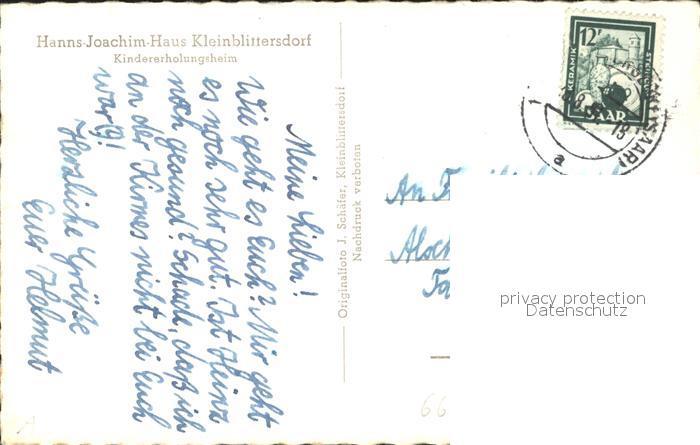 Hanns-Joachim-Haus Kleinblittersdorf
Kindererholungsheim
Meine Lieben!
Wie geht es Euch? Mir geht
es noch sehr gut. Ist Heinz
noch gesund? Schade, daß ich
an der Kirmes nicht bei Euch
war!
Herzliche Grüße
Euer Helmut
Originalfoto J. Schäfer, Kleinblittersdorf
Nachdruck verboten
12F
KERAMIK
SAAR
18
a
An
privacy protection
Datenschutz
66